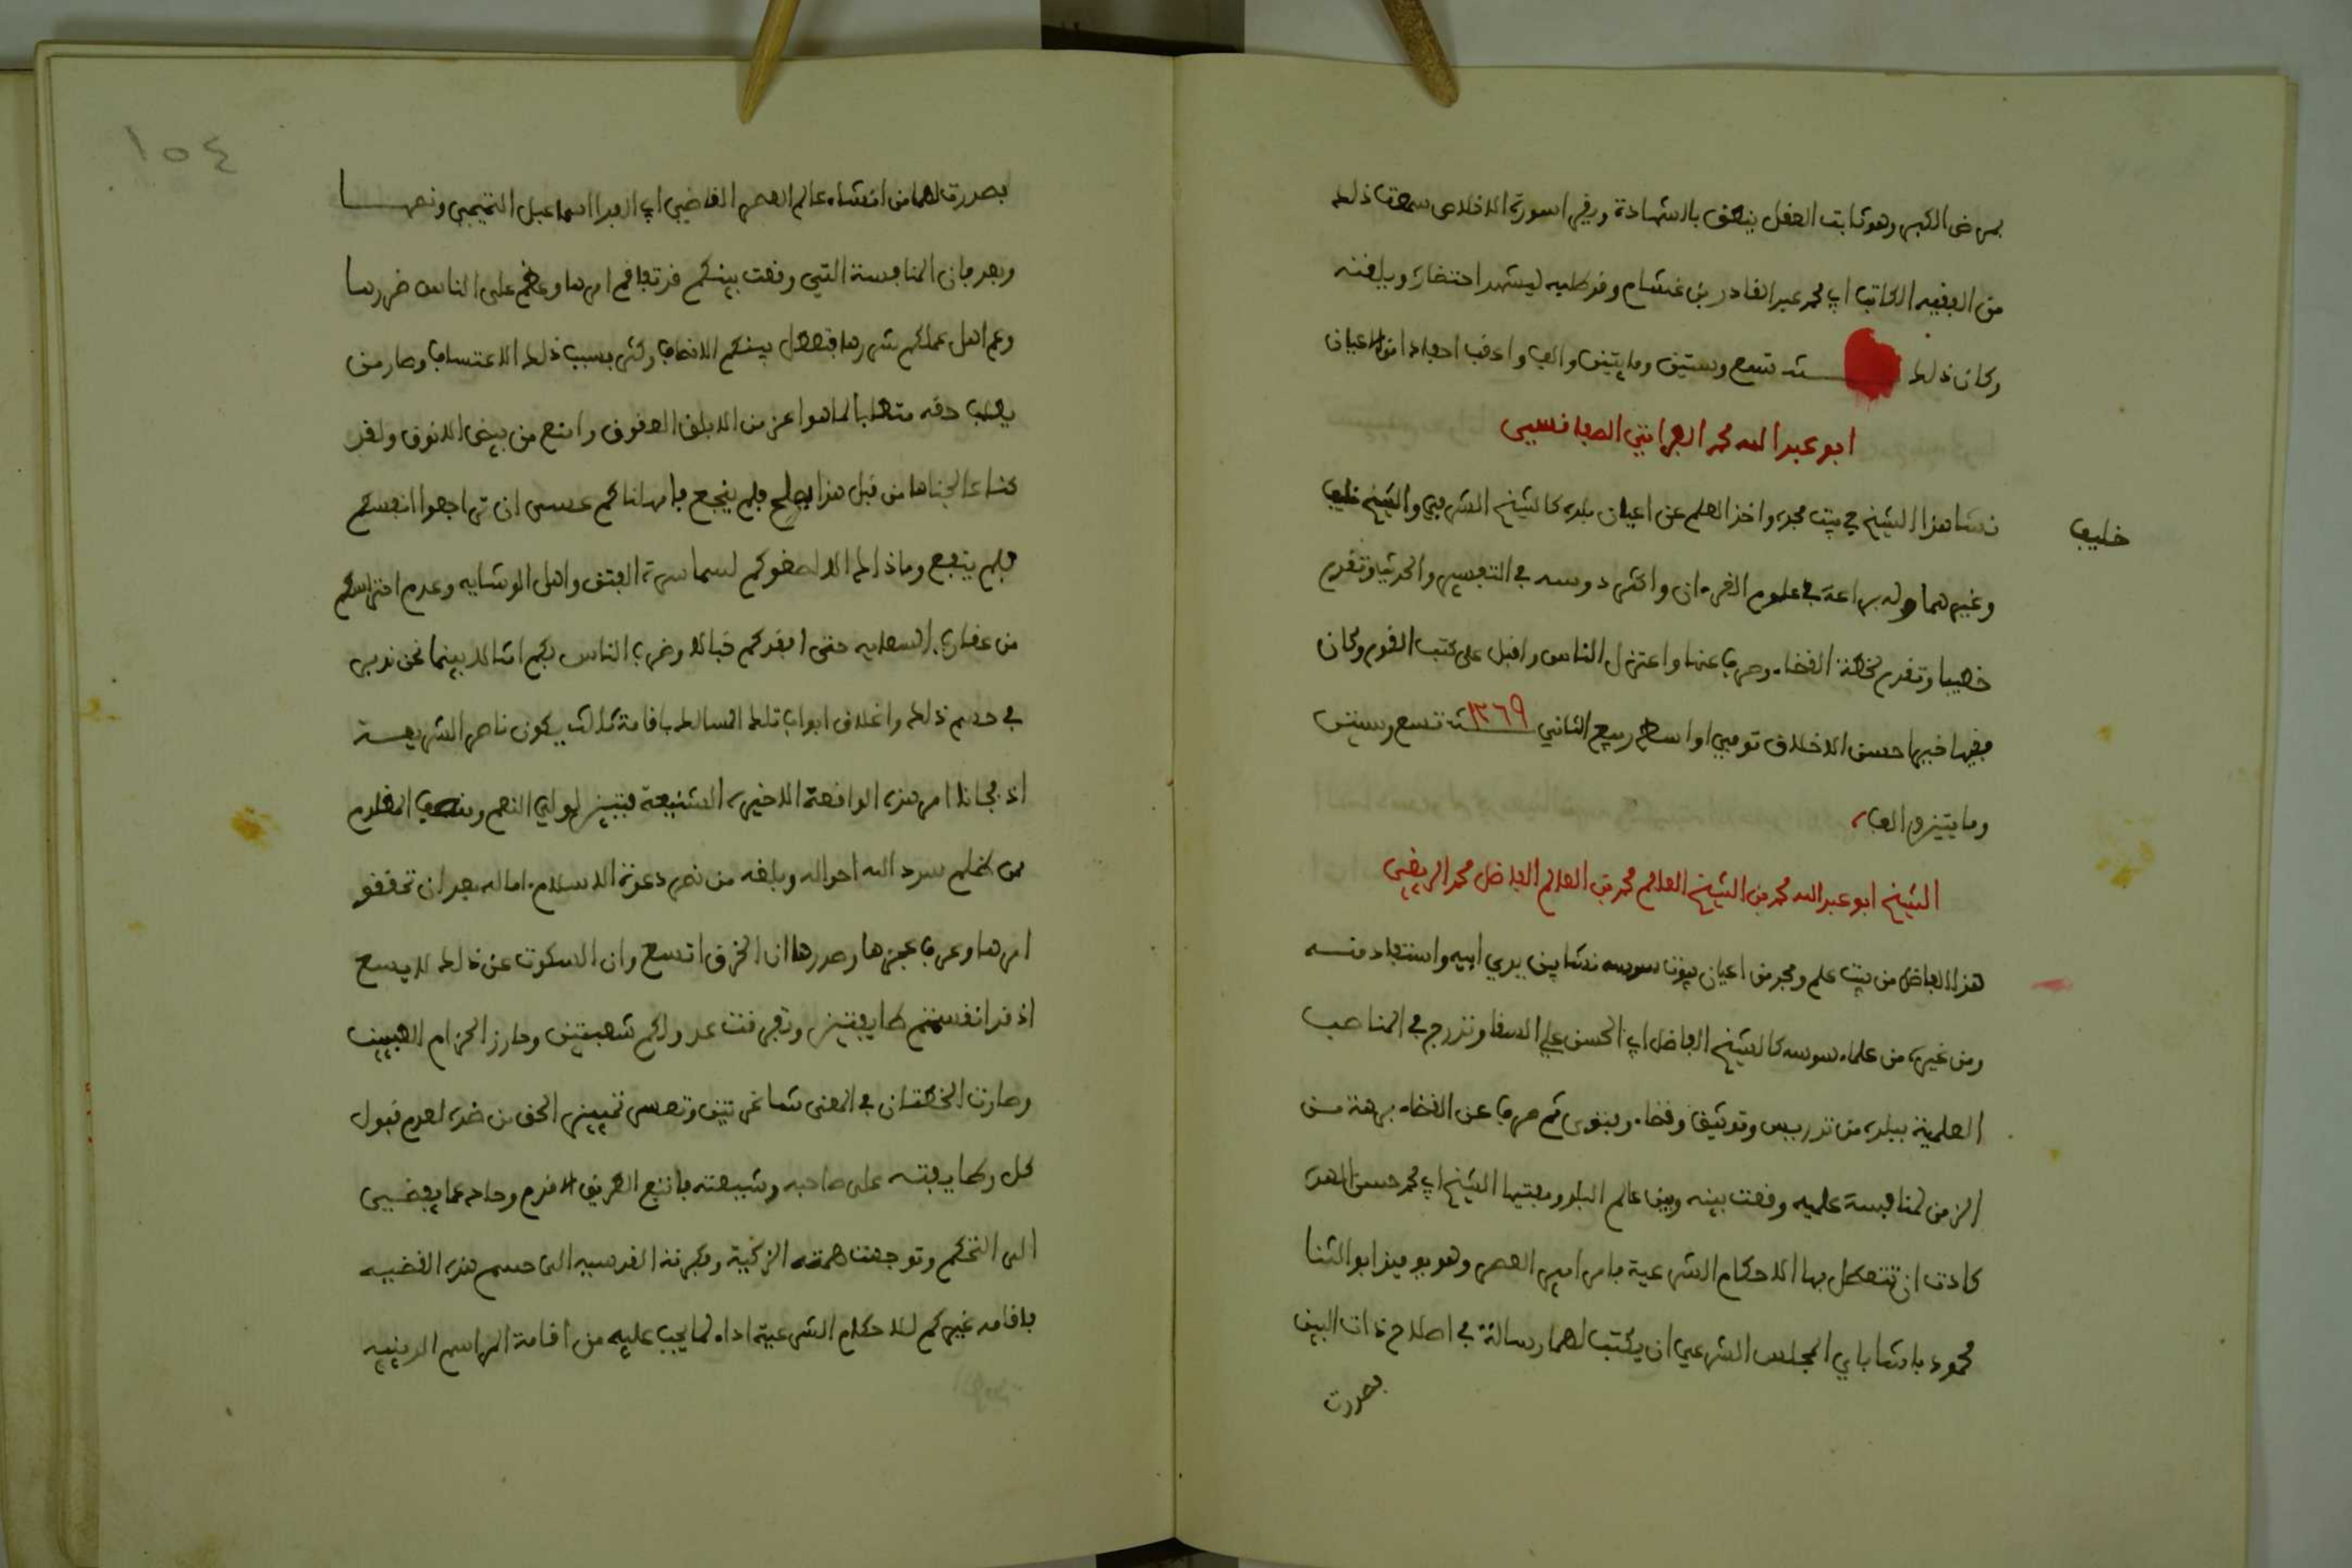 بمرض الكبر وهو ثابت العقل ينطق بالشهادة ويقرا سورة الاخلاص سمعت ذلك
من الفقيه الكاتب ابي محمد عبد القادر بن غشام وقد طلبه ليشهد احتضاره ويلقنه
وكان ذلك سنة تسع وستين ومايتين والف واعقب احفادا من الاعيان
ابو عبد الله محمد الفراتي الصفاقسي
نشا هذا الشيخ في بيت مجده واخذ العلم عن اعيان بلده كالشيخ الشرفي والشيخ خليف
خليف
وغيرهما وله براعة في علوم القرءان واكثر دروسه في التفسير والحديث وتقدم
خطيبا وتقدم لخطة القضاء وصرف عنها واعتزل الناس واقبل على كتب القوم وكان
فقيها خيرا حسن الاخلاق توفي اواسط ربيع الثاني ١٢٦٩ سنة تسع وستين
ومايتين والف
الشيخ ابو عبد الله محمد بن الشيخ العالم محمد بن العالم الفاضل محمد الريضي
هذا الفاضل من بيت علم ومجد من اعيان بيوت سوسه نشا بين يدي ابيه واستفاد منه
ومن غيره من علماء سوسه كالشيخ الفاضل ابي الحسن علي السقا وتدرج في المناصب
العلمية ببلده من تدريس وتوثيق وقضاء وفتوى ثم صرف عن القضاء برهة من
الزمن لمنافسة علميه وقعت بينه وبين عالم البلد ومفتيها الشيخ ابي محمد حسن الهده
كادت ان تتعطل بها الاحكام الشرعية فامر امير العصر وهو يوميذ ابو الثنا
محمود باشا باي المجلس الشرعي ان يكتب لهما رسالة في اصلاح ذات البين
فصدرت
١٥٤
فصدرت لهما من انشاء عالم العصر القاضي ابي الفدا اسماعيل التميمي ونصها
وبعد فان المنافسة التي وقعت بينكم قد تفاقم امرها وعظم على الناس ضررها
وعم اهل عملكم شررها فتعطل بينكم الانصاف وكثر بسبب ذلك الاعتساف وصار من
يطلب حقه متطلبا لما هو اعز من الابلق العقوق وامنع من بيض الانوق ولقد
كنا عالجناها من قبل هذا بصلح فلم ينجع فامهلناكم عسى ان تراجعوا انفسكم
فلم ينفع وما ذالك الا لصغوكم لسماسرة الفتن واهل الوشايه وعدم احتراسكم
من عقارب السعايه حتى افقدكم خبالا وضرب الناس بكم امثالا بينما نحن ندبر
في حسم ذلك واغلاق ابواب تلك المسالك باقامة ثالث يكون ناصر الشريعة
اذ فجانا امر هذه الواقعة الاخيره الشنيعة فتبين لولي النعم ومنصف المظلوم
ممن ظلم سدد الله احواله وبلغه من نصر دعوة الاسلام اماله بعد ان تحققو
امرها وعرف عجزها وصدرها ان الخرق اتسع وان السكوت عن ذلك لا يسع
اذ قد انقسمتم طايفتين وتفرقت عدولكم شعبتين وجاوز الحزام الطبيين
وصارت الخطتان في المعنى شاغرتين وتعسر تمييز الحق من ضده لعدم قبول
كل وطايفته على صاحبه وشيعته فاتبع الطريق الاقوم وحاد عما يفضي
الى التحكم وتوجهت همته الزكية وفكرته القدسيه الى حسم هذه القضيه
باقامه غيركم للاحكام الشرعية اداء لما يجب عليه من اقامة المراسم الدينيه